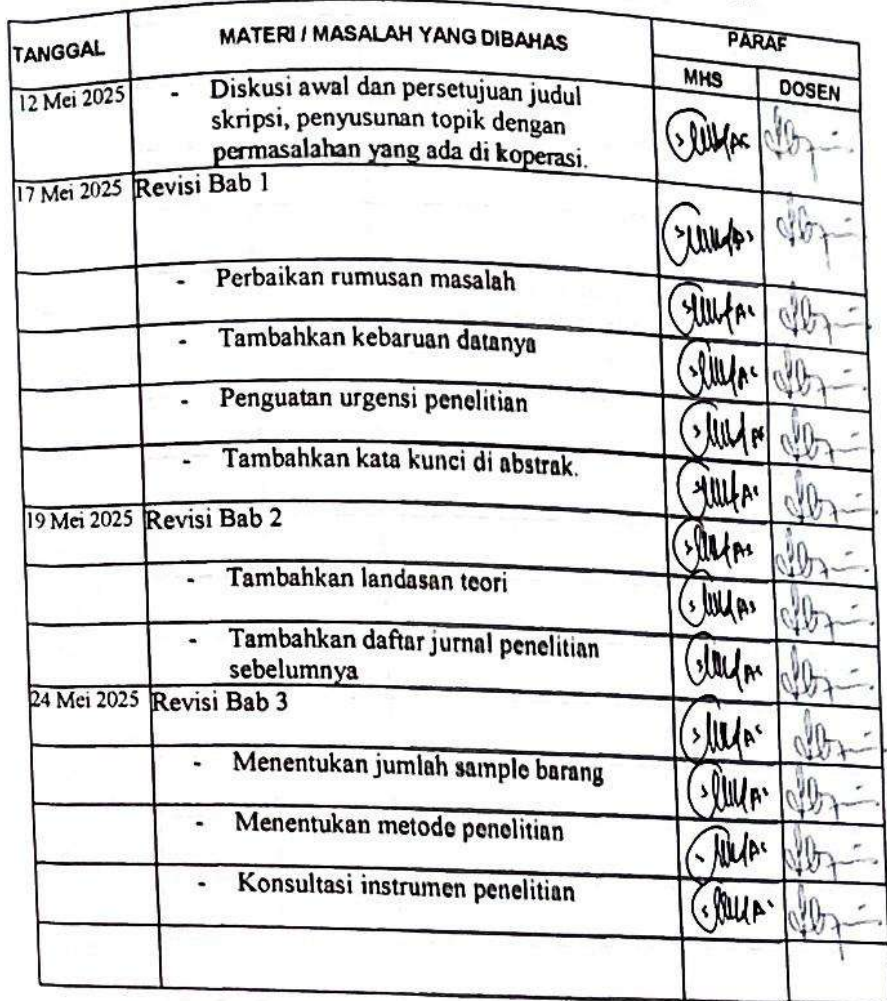 TANGGAL
MATERI / MASALAH YANG DIBAHAS
PARAF
MHS
DOSEN
12 Mei 2025
- Diskusi awal dan persetujuan judul
skripsi, penyusunan topik dengan
permasalahan yang ada di koperasi.
17 Mei 2025
Revisi Bab 1
- Perbaikan rumusan masalah
- Tambahkan kebaruan datanya
- Penguatan urgensi penelitian
- Tambahkan kata kunci di abstrak.
19 Mei 2025
Revisi Bab 2
- Tambahkan landasan teori
- Tambahkan daftar jurnal penelitian
sebelumnya
24 Mei 2025
Revisi Bab 3
- Menentukan jumlah sample barang
- Menentukan metode penelitian
- Konsultasi instrumen penelitian